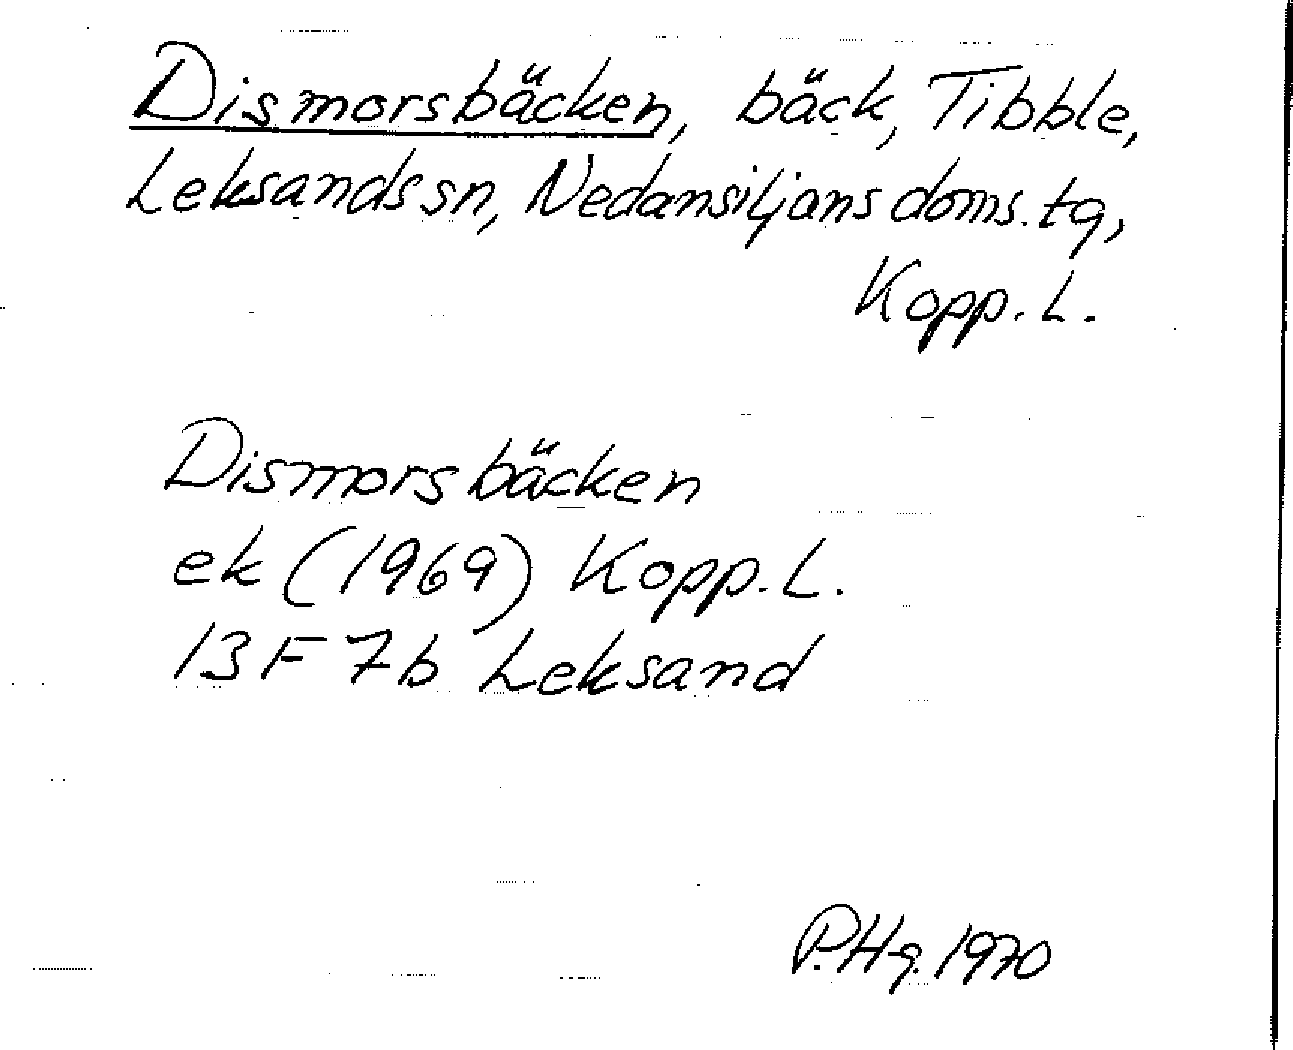 Dismorsbäcken, bäck, Tibble,
Leksands sn, Nedansiljans doms. tg,
Kopp. L.
Dismorsbäcken
ek (1969) Kopp. L.
13 F 7b Leksand
P.Hg. 1970